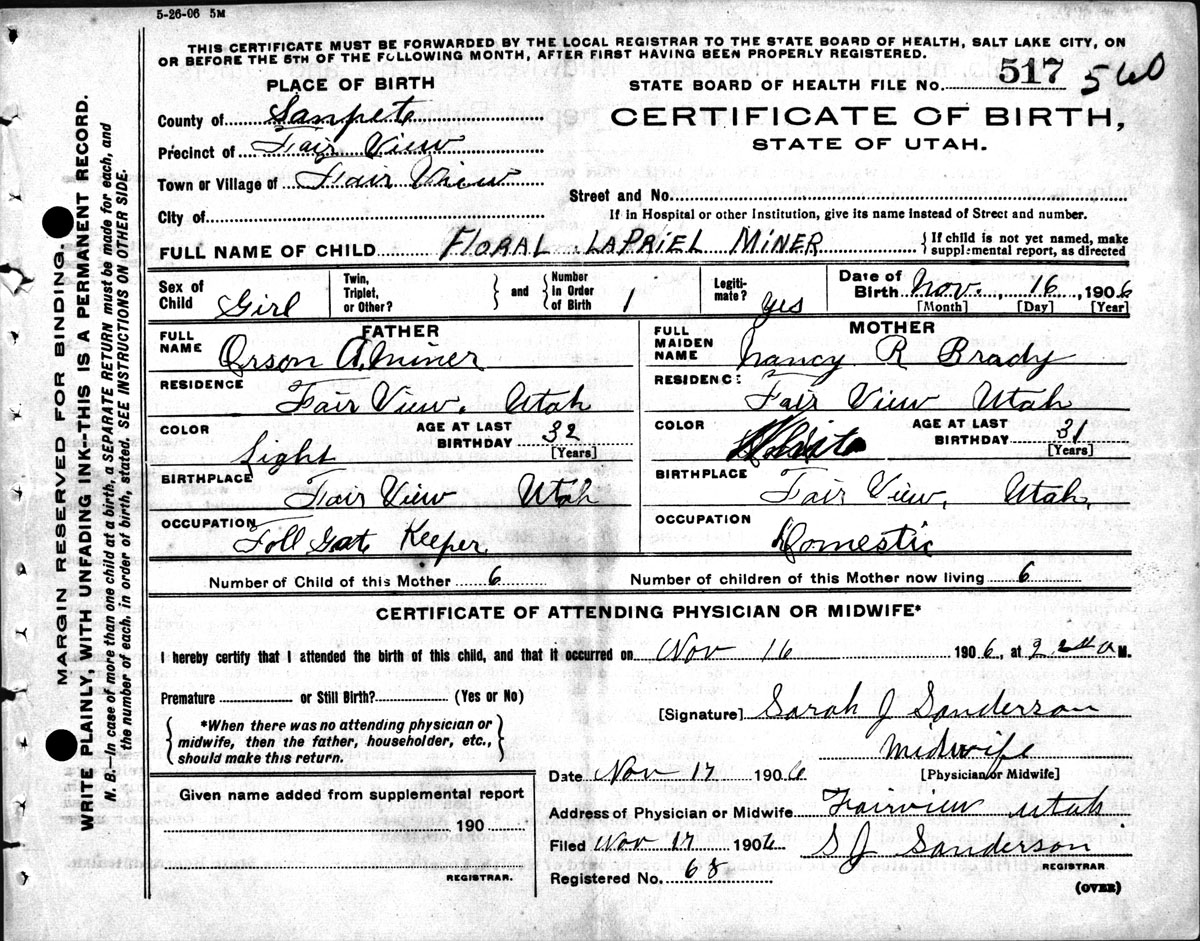 5-26-06 5M
THIS CERTIFICATE MUST BE FORWARDED BY THE LOCAL REGISTRAR TO THE STATE BOARD OF HEALTH, SALT LAKE CITY, ON
OR BEFORE THE 5TH OF THE FOLLOWING MONTH, AFTER FIRST HAVING BEEN PROPERLY REGISTERED.
PLACE OF BIRTH
STATE BOARD OF HEALTH FILE No. 517 560
County of Sanpete
CERTIFICATE OF BIRTH,
STATE OF UTAH.
Precinct of Fair View
Town or Village of Fair View
Street and No.
City of
If in Hospital or other Institution, give its name instead of Street and number.
FULL NAME OF CHILD FLORAL LAPRIEL MINER
{ If child is not yet named, make
supplemental report, as directed
Sex of Child Girl
Twin, Triplet, or Other? } and { Number in Order of Birth 1
Legitimate? Yes
Date of Birth Nov. 16, 1906
[Month] [Day] [Year]
FATHER
FULL NAME Orson A. Miner
RESIDENCE Fair View, Utah
COLOR Light
AGE AT LAST BIRTHDAY 32
[Years]
BIRTHPLACE Fair View Utah
OCCUPATION Toll Gate Keeper
MOTHER
FULL MAIDEN NAME Nancy R Brady
RESIDENCE Fair View Utah
COLOR White
AGE AT LAST BIRTHDAY 31
[Years]
BIRTHPLACE Fair View, Utah,
OCCUPATION Domestic
Number of Child of this Mother 6
Number of children of this Mother now living 6
CERTIFICATE OF ATTENDING PHYSICIAN OR MIDWIFE*
I hereby certify that I attended the birth of this child, and that it occurred on Nov 16 1906, at 2 A M.
Premature or Still Birth? (Yes or No)
{ *When there was no attending physician or
midwife, then the father, householder, etc.,
should make this return. }
[Signature] Sarah J Sanderson
Midwife
[Physician or Midwife]
Date Nov 17 1906
Given name added from supplemental report
190
REGISTRAR.
Address of Physician or Midwife Fairview Utah
Filed Nov 17 1906 S J Sanderson
REGISTRAR
Registered No. 68
(OVER)
MARGIN RESERVED FOR BINDING.
WRITE PLAINLY, WITH UNFADING INK—THIS IS A PERMANENT RECORD.
N. B.—In case of more than one child at a birth, a SEPARATE RETURN must be made for each, and
the number of each, in order of birth, stated. SEE INSTRUCTIONS ON OTHER SIDE.